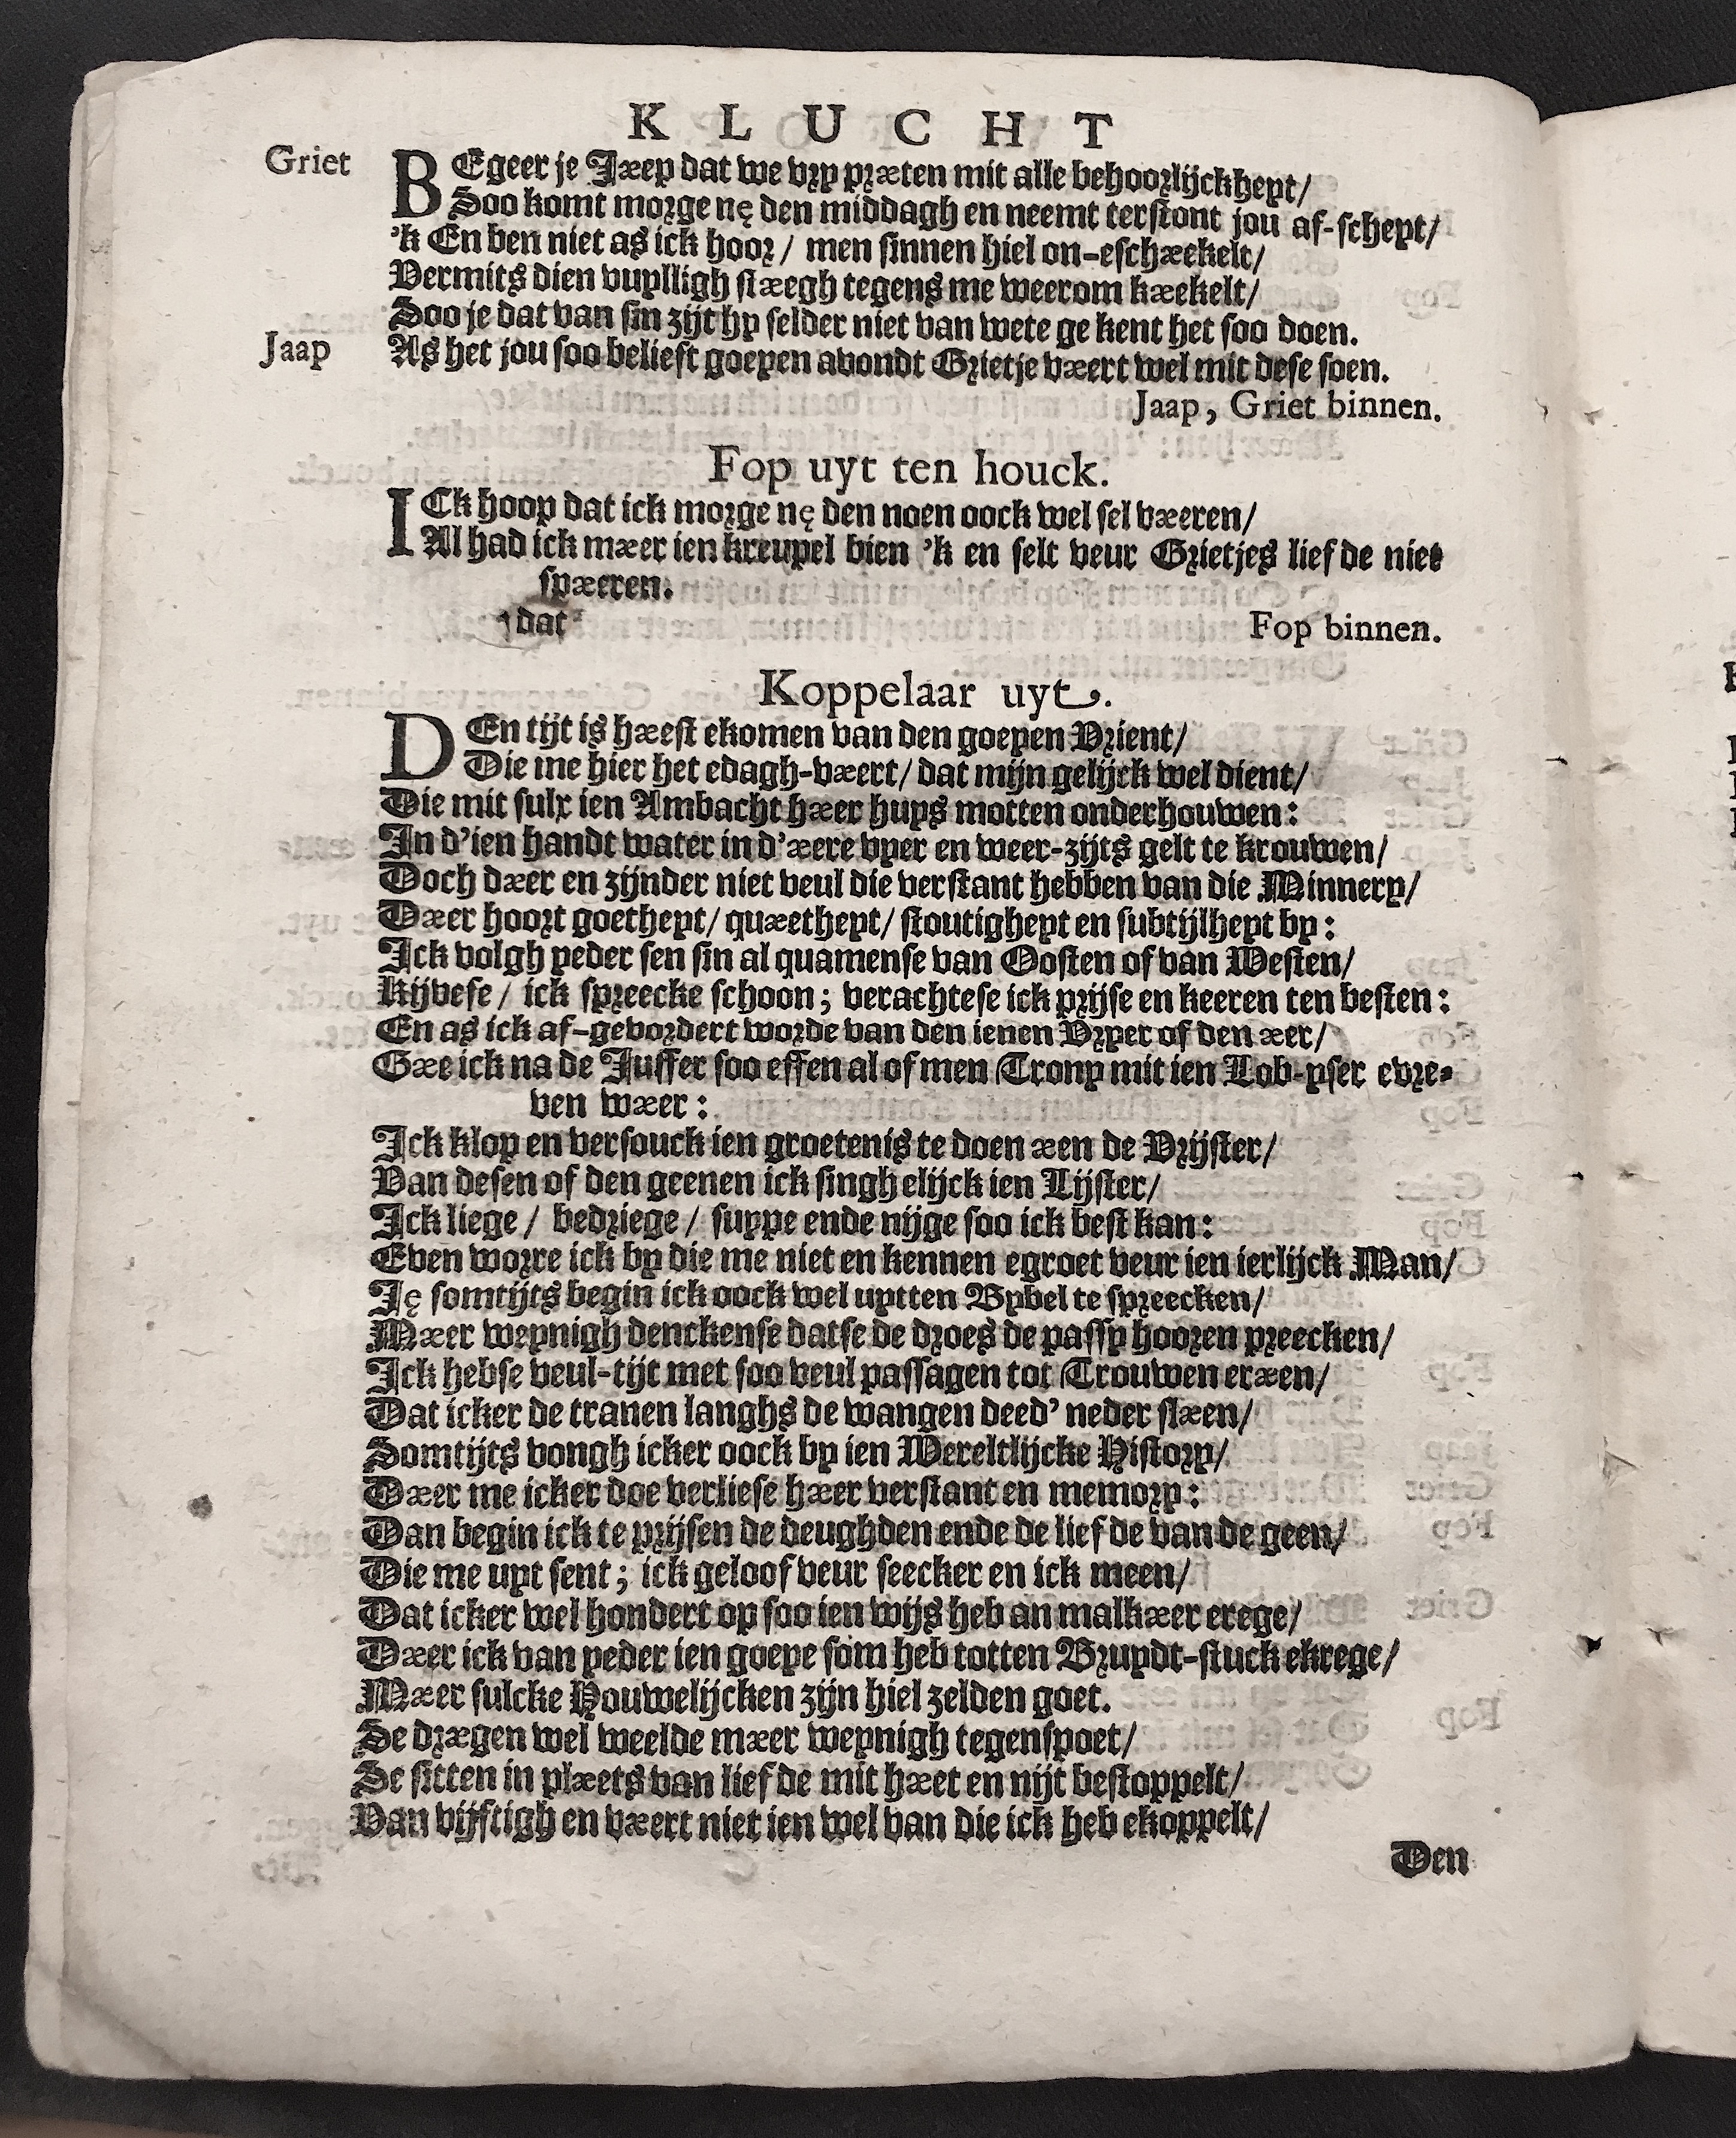 KLUCHT
Griet BEgeer je Jæep dat we vry præten mit alle behoorlijckheyt/
Soo komt morge nę den middagh en neemt terstont jou af-scheyt/
'k En ben niet as ick hoor / men sinnen hiel on-eschæekelt/
Vermits dien vuylligh stæegh tegens me weerom kæekelt/
Soo je dat van sin zijt hy selder niet van wete ge kent het soo doen.
Jaap As het jou soo belieft goeyen avondt Grietje væert wel mit dese soen.
Jaap, Griet binnen.
Fop uyt ten houck.
ICk hoop dat ick morge nę den noen oock wel sel væeren/
Al had ick mæer ien kreupel bien 'k en selt veur Grietjes liefde niet
spæeren.
dat
Fop binnen.
Koppelaar uyt.
DEn tijt is hæest ekomen van den goeyen Vrient/
Die me hier het edagh-væert/ dat mijn gelijck wel dient/
Die mit sulx ien Ambacht hæer huys motten onderhouwen:
In d'ien handt water in d'æere vyer en weer-zijts gelt te krouwen/
Doch dæer en zijnder niet veul die verstant hebben van die Minnery/
Dæer hoort goetheyt/ quæetheyt/ stoutigheyt en subtijlheyt by:
Ick volgh yeder sen sin al quamense van Oosten of van Westen/
Kijvese / ick spreecke schoon; verachtese ick prijse en keeren ten besten:
En as ick af-gevordert worde van den ienen Vryer of den æer/
Gæe ick na de Juffer soo effen al of men Trony mit ien Lob-yser evre-
ven wæer:
Ick klop en versouck ien groetenis te doen æen de Vrijster/
Van desen of den geenen ick singh elijck ien Lijster/
Ick liege / bedriege / suype ende nijge soo ick best kan:
Even worre ick by die me niet en kennen egroet veur ien ierlijck Man/
Ję somtijts begin ick oock wel uytten Bybel te spreecken/
Mæer weynigh denckense datse de droes de passy hooren preecken/
Ick hebse veul-tijt met soo veul passagen tot Trouwen eræen/
Dat icker de tranen langhs de wangen deed' neder slæen/
Somtijts vongh icker oock by ien Wereltlijcke History/
Dæer me icker doe verliese hæer verstant en memory:
Dan begin ick te prijsen de deughden ende de liefde van de geen/
Die me uyt sent; ick geloof veur seecker en ick meen/
Dat icker wel hondert op soo ien wijs heb an malkæer erege/
Dæer ick van yeder ien goeye som heb totten Bruydt-stuck ekrege/
Mæer sulcke Houwelijcken zijn hiel zelden goet.
Se drægen wel weelde mæer weynigh tegenspoet/
Se sitten in plæets van liefde mit hæet en nijt bestoppelt/
Van vijftigh en væert niet ien wel van die ick heb ekoppelt/
Den